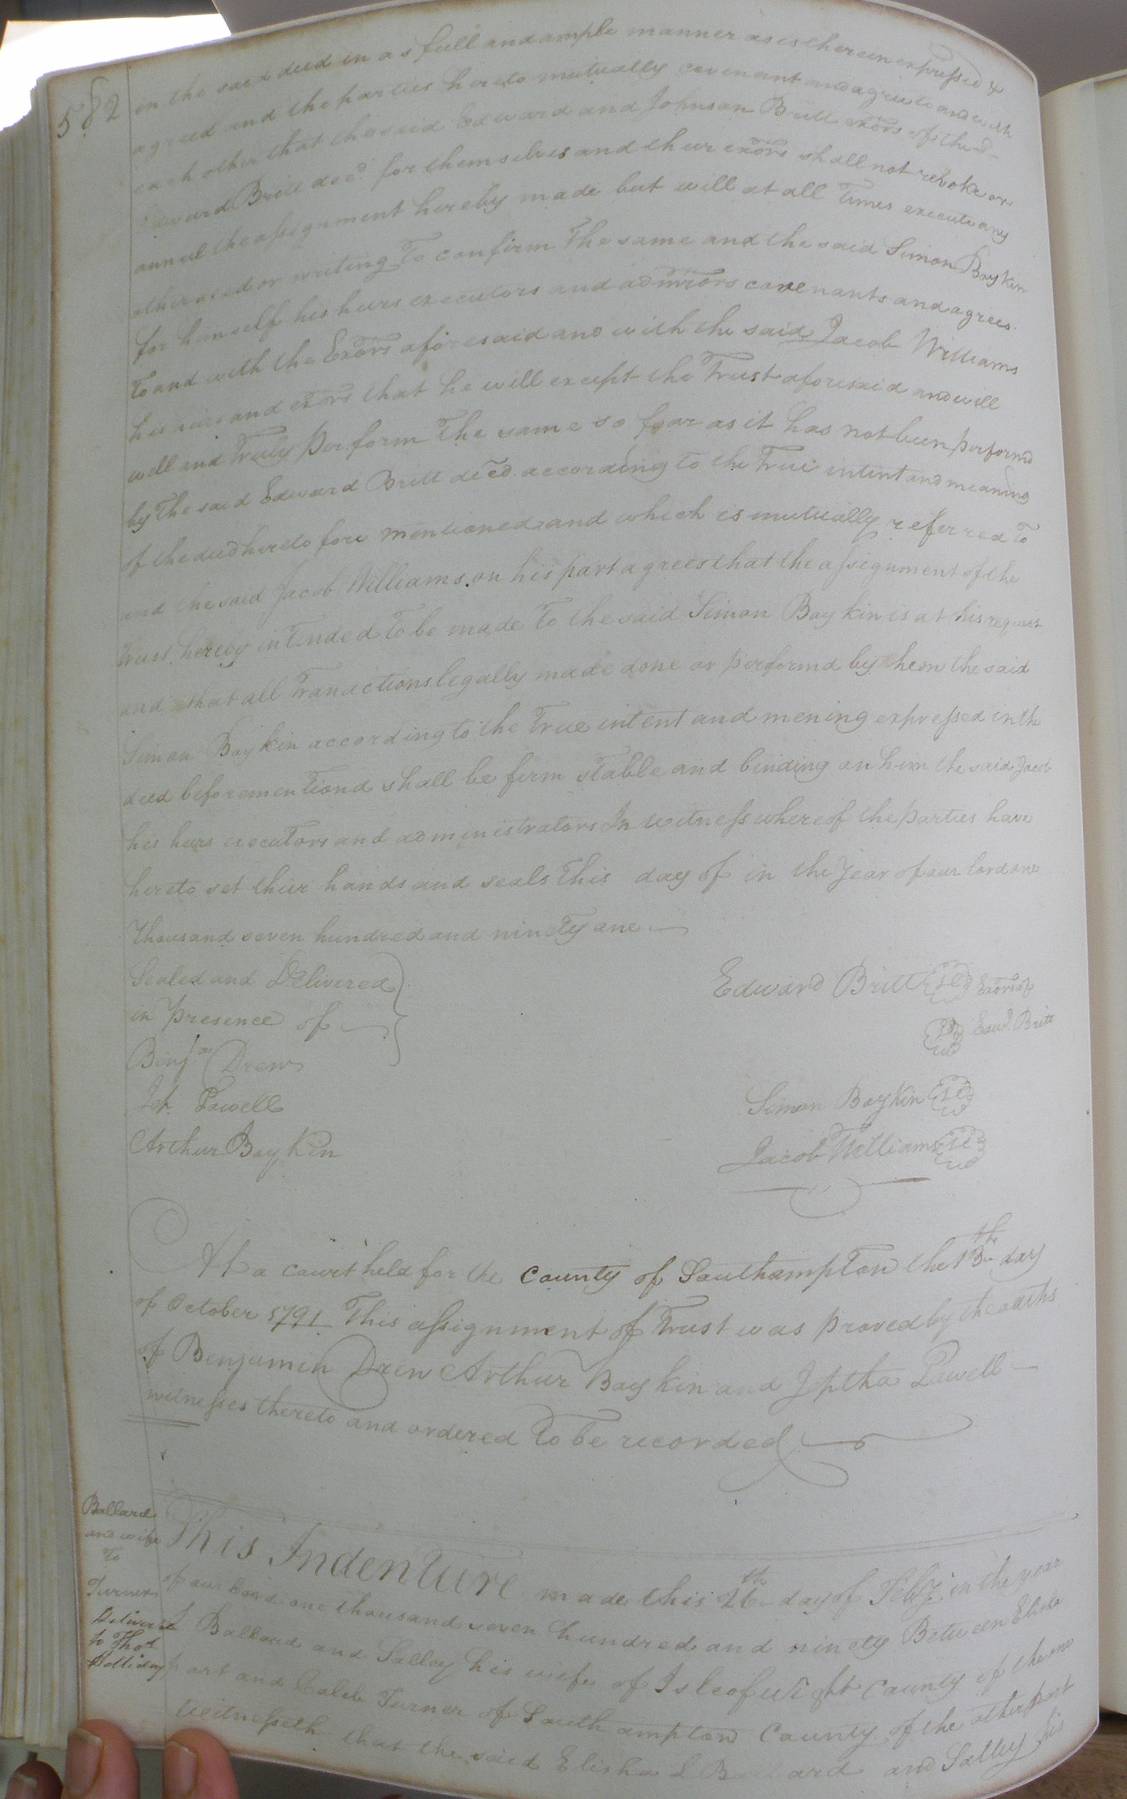 582
in the said deed in as full and ample manner as is therein expressed &
agreed and the parties hereto mutually covenant and agree to and with
each other that the said Edward and Johnson Britt exors of the sd
Edward Britt decd. for themselves and their exors shall not revoke or
annul the assignment hereby made but will at all Times execute any
other deed or writing To confirm The same and the said Simon Boykin
for himself his heirs executors and admrors covenants and agrees
To and with the Exors aforesaid and with the said Jacob Williams
his heirs and exors that he will except the Trust aforesaid and will
well and Truly perform The same so foar as it has not been performd
by The said Edward Britt decd. according to the True intent and meaning
of the deed heretofore mentioned and which is mutually referred To
and the said Jacob Williams on his part agrees that the assignment of the
Trust hereby intended To be made To the said Simon Boykin is at his request
and that all Tranactions legally made done or performd by hem the said
Simon Boykin according to the True intent and mening expressed in the
deed beforementiond shall be firm stable and binding on him the said Jacob
his heirs executors and administrators In witness whereof the parties have
hereto set their hands and seals This day of in the year of our lord one
Thousand seven hundred and ninety one
Sealed and Delivered
in Presence of
Benjan Drew
Jet. Powell
Arthur Boykin
Edward Britt Exors of
Edwd. Britt
Simon Boykin
Jacob Williams
At a court held for the county of Southampton the 13th day
of October 1791 This assignment of Trust was proved by the oaths
of Benjamin Drew Arthur Boykin and Jptha Powell
witnesses thereto and ordered To be recorded
Ballard
and wife
To
Turner
Deliverd
to Thos
Holliday
This Indenture made this 26th day of Feby in the year
of our Lord one thousand seven hundred and ninety Between Elisha
L Ballard and Salley his wife of Isle of Wight County of the one
part and Caleb Turner of Southampton County of the other part
Witnesseth that the said Elisha L Ballard and Salley his